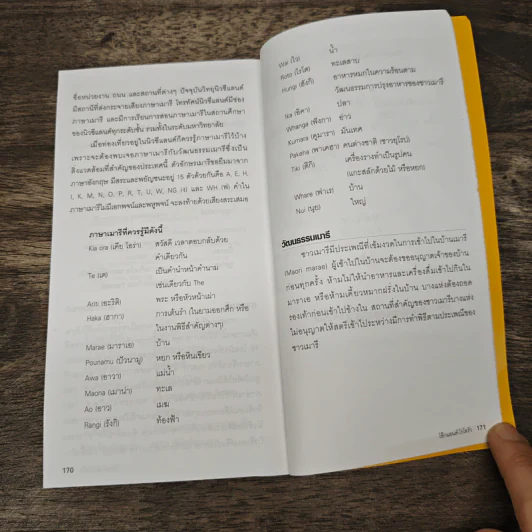 ชื่อหน่วยงาน ถนน และสถานที่ต่างๆ ปัจจุบันวิทยุนิวซีแลนด์
มีสถานีที่ส่งกระจายเสียงภาษาเมารี โทรทัศน์นิวซีแลนด์มีช่อง
ภาษาเมารี และมีการเรียนการสอนภาษาเมารีในสถานศึกษา
ของนิวซีแลนด์ทุกระดับชั้น รวมทั้งในระดับมหาวิทยาลัย
เมื่อท่องเที่ยวอยู่ในนิวซีแลนด์ก็ควรรู้ภาษาเมารีไว้บ้าง
เพราะจะต้องพบเจอภาษาเมารีกับวัฒนธรรมเมารีซึ่งเป็น
สิ่งแวดล้อมที่สำคัญของประเทศนี้ ตัวอักษรเมารีขอยืมมาจาก
ภาษาอังกฤษ มีสระและพยัญชนะอยู่ 15 ตัวด้วยกันคือ A, E, H,
I, K, M, N, O, P, R, T, U, W, NG (ง) และ WH (ฟ) คำใน
ภาษาเมารีไม่มีเอกพจน์และพหูพจน์ จะลงท้ายด้วยเสียงสระเสมอ
ภาษาเมารีที่ควรรู้มีดังนี้
Kia ora (เคีย โอร่า) สวัสดี เวลาตอบกลับด้วย
คำเดียวกัน
Te (เต) เป็นคำนำหน้าคำนาม
เช่นเดียวกับ The
Ariti (อะริติ) พระ หรือหัวหน้าเผ่า
Haka (ฮากา) การเต้นรำ (ในยามออกศึก หรือ
ในงานพิธีสำคัญต่างๆ)
Marae (มาราเอ) บ้าน
Pounamu (ปัวนามู) หยก หรือหินเขียว
Awa (อาวา) แม่น้ำ
Maona (เมาน่า) ทะเล
Ao (อาว) เมฆ
Rangi (รังกิ) ท้องฟ้า
170
Wai (ไว) น้ำ
Roto (โรโต) ทะเลสาบ
Hungi (ฮังกิ) อาหารหมกในความร้อนตาม
วัฒนธรรมการปรุงอาหารของชาวเมารี
Ika (อิคา) ปลา
Whanga (ฟังกา) อ่าว
Kumara (คูมารา) มันเทศ
Pakeha (พาเคฮา) คนต่างชาติ (ชาวยุโรป)
Tiki (ติกิ) เครื่องรางทำเป็นรูปคน
(แกะสลักด้วยไม้ หรือหยก)
Whare (ฟาเร) บ้าน
Nui (นุย) ใหญ่
วัฒนธรรมเมารี
ชาวเมารีมีประเพณีที่เข้มงวดในการเข้าไปในบ้านเมารี
(Maori marae) ผู้เข้าไปในบ้านจะต้องขออนุญาตเจ้าของบ้าน
ก่อนทุกครั้ง ห้ามไม่ให้นำอาหารและเครื่องดื่มเข้าไปกินใน
มาราเอ หรือห้ามเคี้ยวหมากฝรั่งในบ้าน บางแห่งต้องถอด
รองเท้าก่อนเข้าไปข้างใน สถานที่สำคัญของชาวเมารีบางแห่ง
ไม่อนุญาตให้สตรีเข้าไประหว่างมีการทำพิธีตามประเพณีของ
ชาวเมารี
171